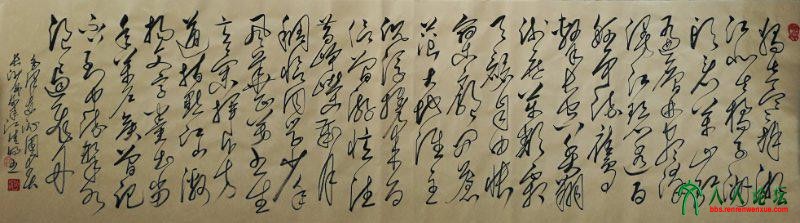 独立寒秋湘
江北去橘子洲
头看万山红
遍层林尽染
漫江碧透百
舸争流鹰
击长空鱼翔
浅底万类霜
天竞自由怅
寥廓问苍
茫大地谁主
沉浮携来百
侣曾游忆往
昔峥嵘岁月
稠恰同学少年
风华正茂书生
意气挥斥方
遒指点江山激
扬文字粪土当
年万户侯曾记
否到中流击水
浪遏飞舟
毛泽东词沁园春
长沙
人人论坛
bbs.renrenwenxue.com